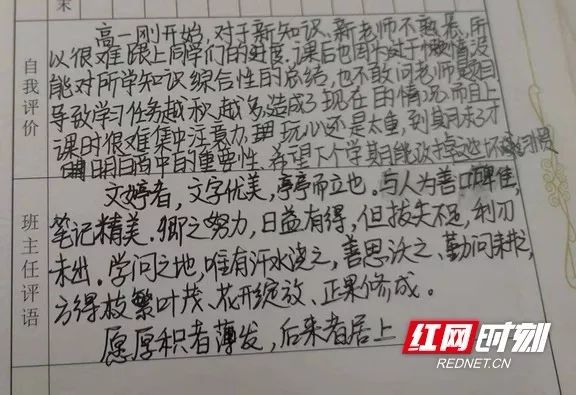 末
自我评价
高一刚开始，对于新知识、新老师不熟悉，所
以很难跟上同学们的进度，课后也因为过于懒惰没
能对所学知识综合性的总结，也不敢问老师题目
导致学习任务越积越多，造成了现在的情况，而且上
课时很难集中注意力，玩心还是太重，到其月末了才
明白高中的重要性，希望下个学期能改掉这坏习惯
班主任评语
文婷者，文字优美，亭亭而立也。与人为善口碑佳，
笔记精美。卿之努力，日益有得，但拔尖不足，利刃
未出。学问之地，唯有汗水浇之，善思沃之、勤问耕之，
方得枝繁叶茂、花开绽放、正果修成。
愿厚积者薄发，后来者居上
红网时刻
REDNET.CN